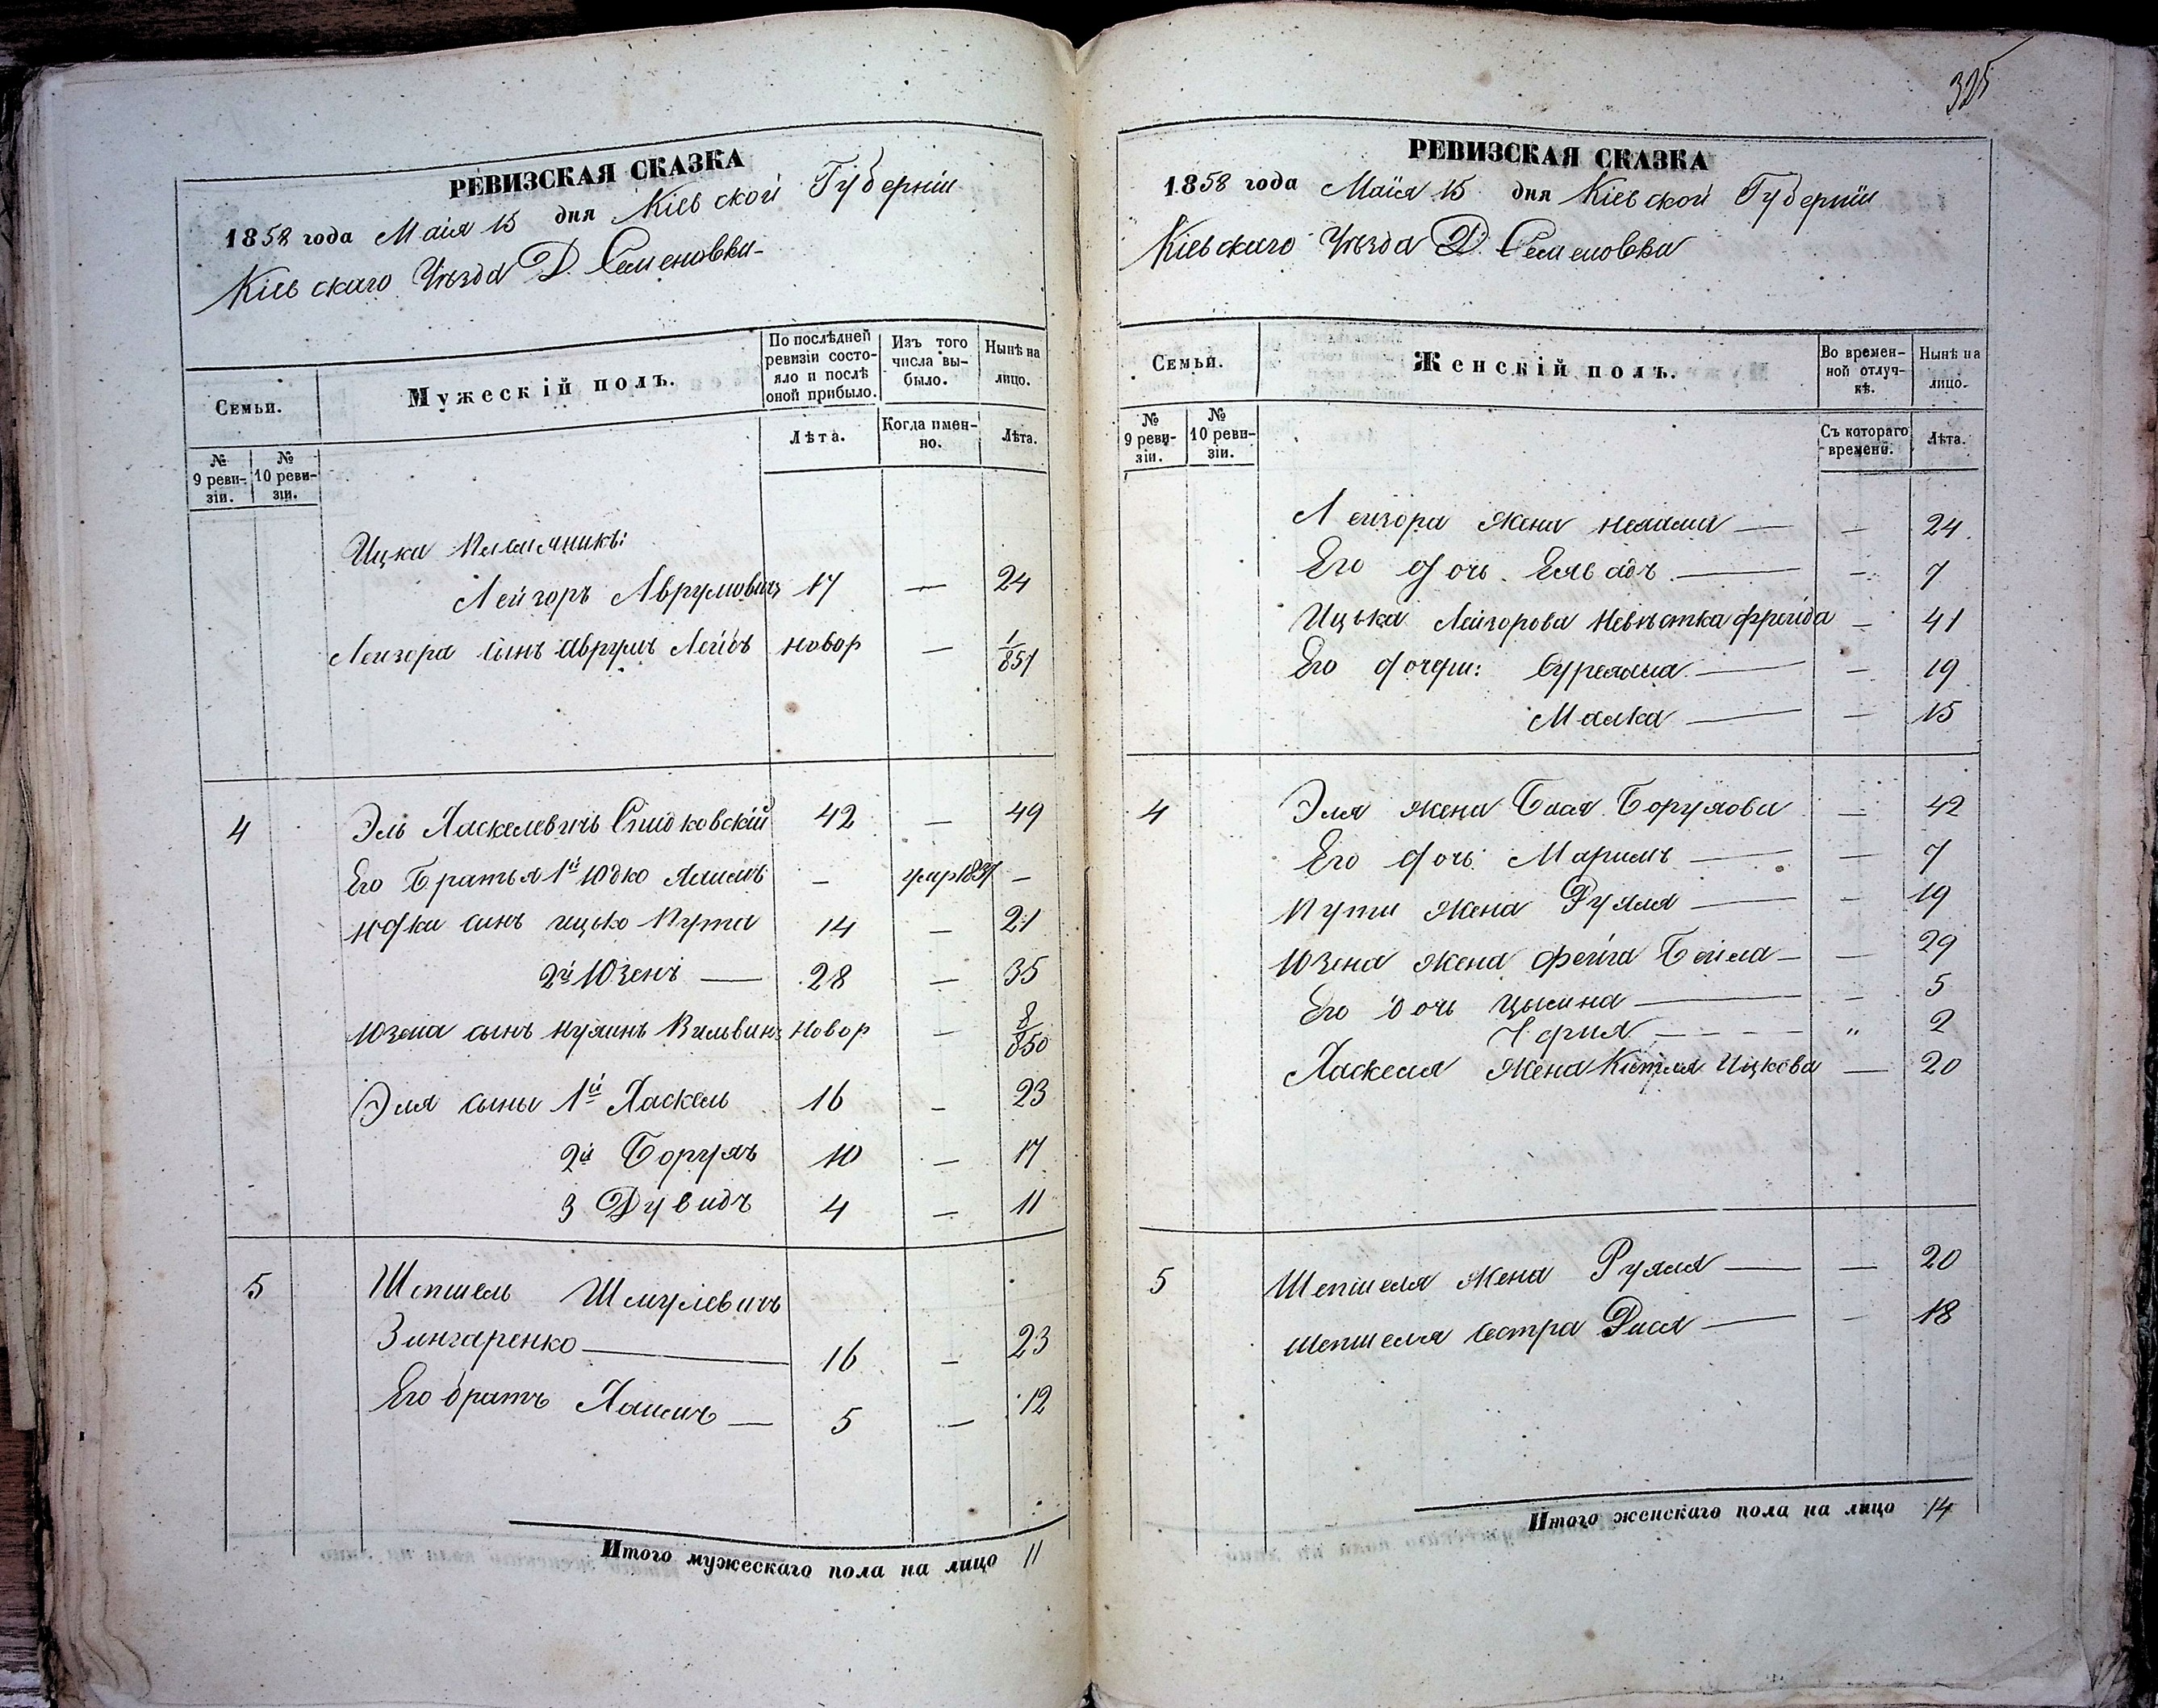 325
РЕВИЗСКАЯ СКАЗКА
1858 года Маія 15 дня Кіевской Губерніи
Кіевскаго Уѣзда Д. Семеновки
Семьи.
Мужескій полъ.
По послѣдней ревизіи состояло и послѣ оной прибыло.
Изъ того числа выбыло.
Нынѣ на лицо.
№ 9 ревизіи.
№ 10 ревизіи.
Лѣта.
Когда именно.
Лѣта.
Ицки Племянникъ:
Лейзоръ Аврумовичъ 17 — 24
Лейзора сынъ Аврумъ Лейбъ новор — 1/851
4 Эль Хаскелевичъ 42 — 49
Его Братья 1й Юдко Хаимъ — —
Юдки сынъ ицько Пута 14 — 21
2й Юзенъ — 28 — 35
Юзена сынъ Вильвинъ Новор — 8/850
Эля сыны 1й Хаскель 16 — 23
2й Борухъ 10 — 17
3 Дувидъ 4 — 11
5 Шепшель Шмулевичъ
Зингаренко — 16 — 23
Его братъ Хаимъ — 5 — 12
Итого мужескаго пола на лицо 11
РЕВИЗСКАЯ СКАЗКА
1858 года Маія 15 дня Кіевской Губерніи
Кіевскаго Уѣзда Д. Семеновка
Семьи.
Женскій полъ.
Во временной отлучкѣ.
Нынѣ на лицо.
№ 9 ревизіи.
№ 10 ревизіи.
Съ котораго времени.
Лѣта.
Лейзора Жена Нехама — — 24
Его дочь — — 7
Ицька Лейзорова Невѣстка фрейда — 41
Его дочери: — — 19
Малка — — 15
4 Эля жена Бася Борухова — 42
Его дочь Маримъ — — 7
Пути Жена Рухля — — 19
Юзена жена фейга Бейла — — 29
Его дочь Цысина — — 5
2
Хаскеля Жена Ицкова — 20
5 Шепшеля Жена Рухля — — 20
Шепшеля сестра Рися — — 18
Итого женскаго пола на лицо 14